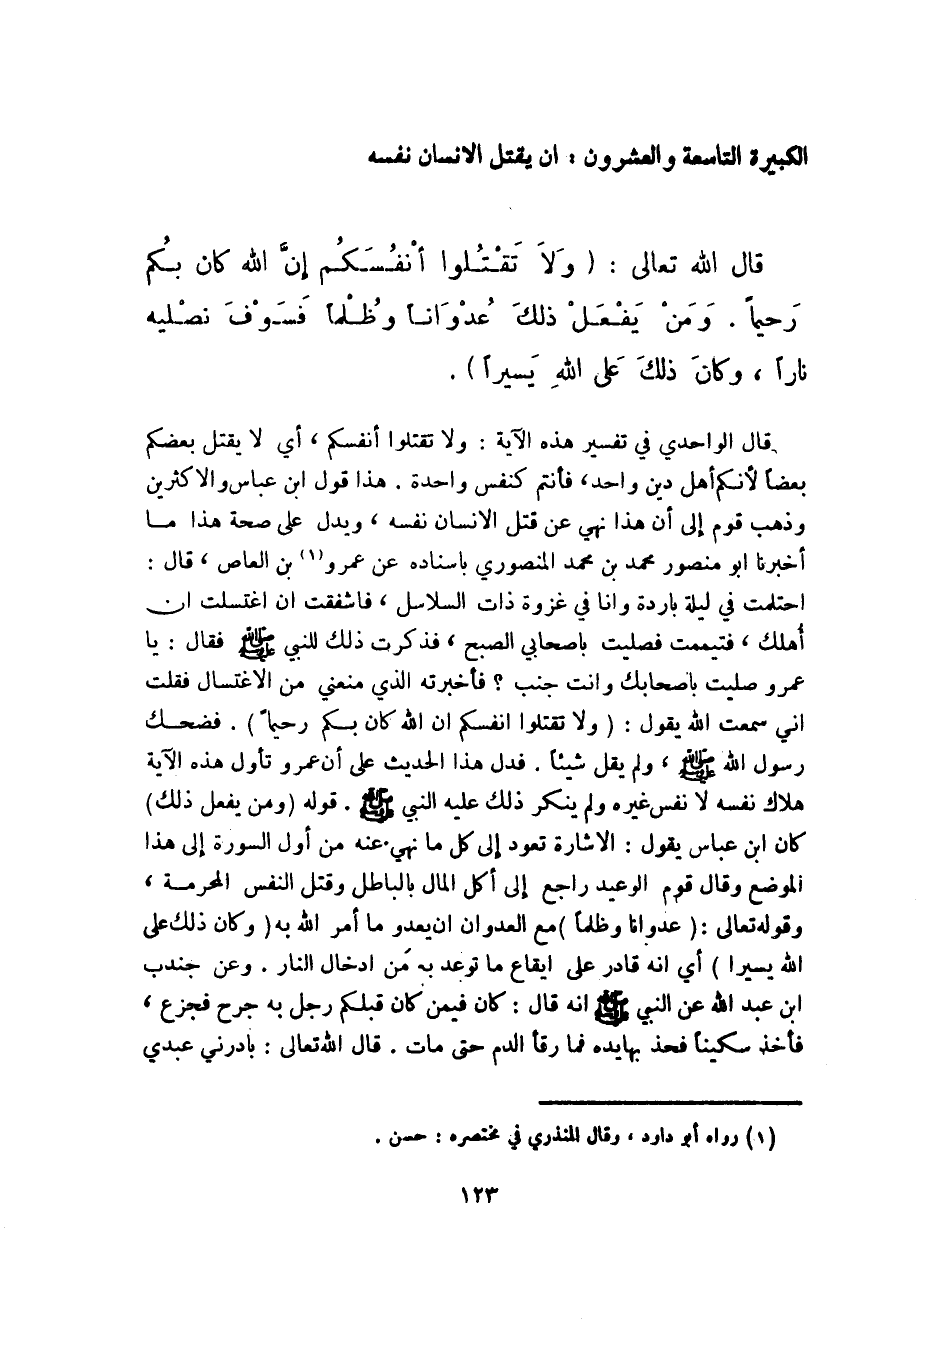 الكبيرة التاسعة والعشرون : ان يقتل الانسان نفسه
قال الله تعالى : ( وَلاَ تَقْتُلوا أنْفُسَكُم إنَّ الله كان بكُم
رَحيماً . وَمَنْ يَفْعَلْ ذلكَ عُدْوَاناً وظُلْماً فَسَوْفَ نصْليه
ناراً ، وكانَ ذلكَ عَلى اللهِ يَسيراً ) .
قال الواحدي في تفسير هذه الآية : ولا تقتلوا أنفسكم ، أي لا يقتل بعضكم
بعضاً لأنكم أهل دين واحد، فأنتم كنفس واحدة . هذا قول ابن عباس والاكثرين
وذهب قوم إلى أن هذا نهي عن قتل الانسان نفسه ، ويدل على صحة هذا مـا
أخبرنا ابو منصور محمد بن محمد المنصوري باسناده عن عمرو(١) بن العاص ، قال :
احتلمت في ليلة باردة وانا في غزوة ذات السلاسل ، فاشفقت ان اغتسلت ان
أهلك ، فتيممت فصليت باصحابي الصبح ، فذكرت ذلك للنبي ﷺ فقال : يا
عمرو صليت باصحابك وانت جنب ؟ فأخبرته الذي منعني من الاغتسال فقلت
اني سمعت الله يقول : ( ولا تقتلوا انفسكم ان الله كان بكم رحيماً ) . فضحك
رسول الله ﷺ ، ولم يقل شيئاً . فدل هذا الحديث على أن عمرو تأول هذه الآية
هلاك نفسه لا نفس غيره ولم ينكر ذلك عليه النبي ﷺ . قوله (ومن يفعل ذلك)
كان ابن عباس يقول : الاشارة تعود إلى كل ما نهي عنه من أول السورة إلى هذا
الموضع وقال قوم الوعيد راجع إلى أكل المال بالباطل وقتل النفس المحرمة ،
وقوله تعالى :( عدوانا وظلماً )مع العدوان ان يعدو ما أمر الله به( وكان ذلك على
الله يسيرا ) أي انه قادر على ايقاع ما توعد به من ادخال النار . وعن جندب
ابن عبد الله عن النبي ﷺ انه قال : كان فيمن كان قبلكم رجل به جرح فجزع ،
فأخذ سكيناً فحذ بهايده فما رقأ الدم حتى مات . قال الله تعالى : بادرني عبدي
(١) رواه أبو داود ، وقال المنذري في مختصره : حسن .
١٢٣